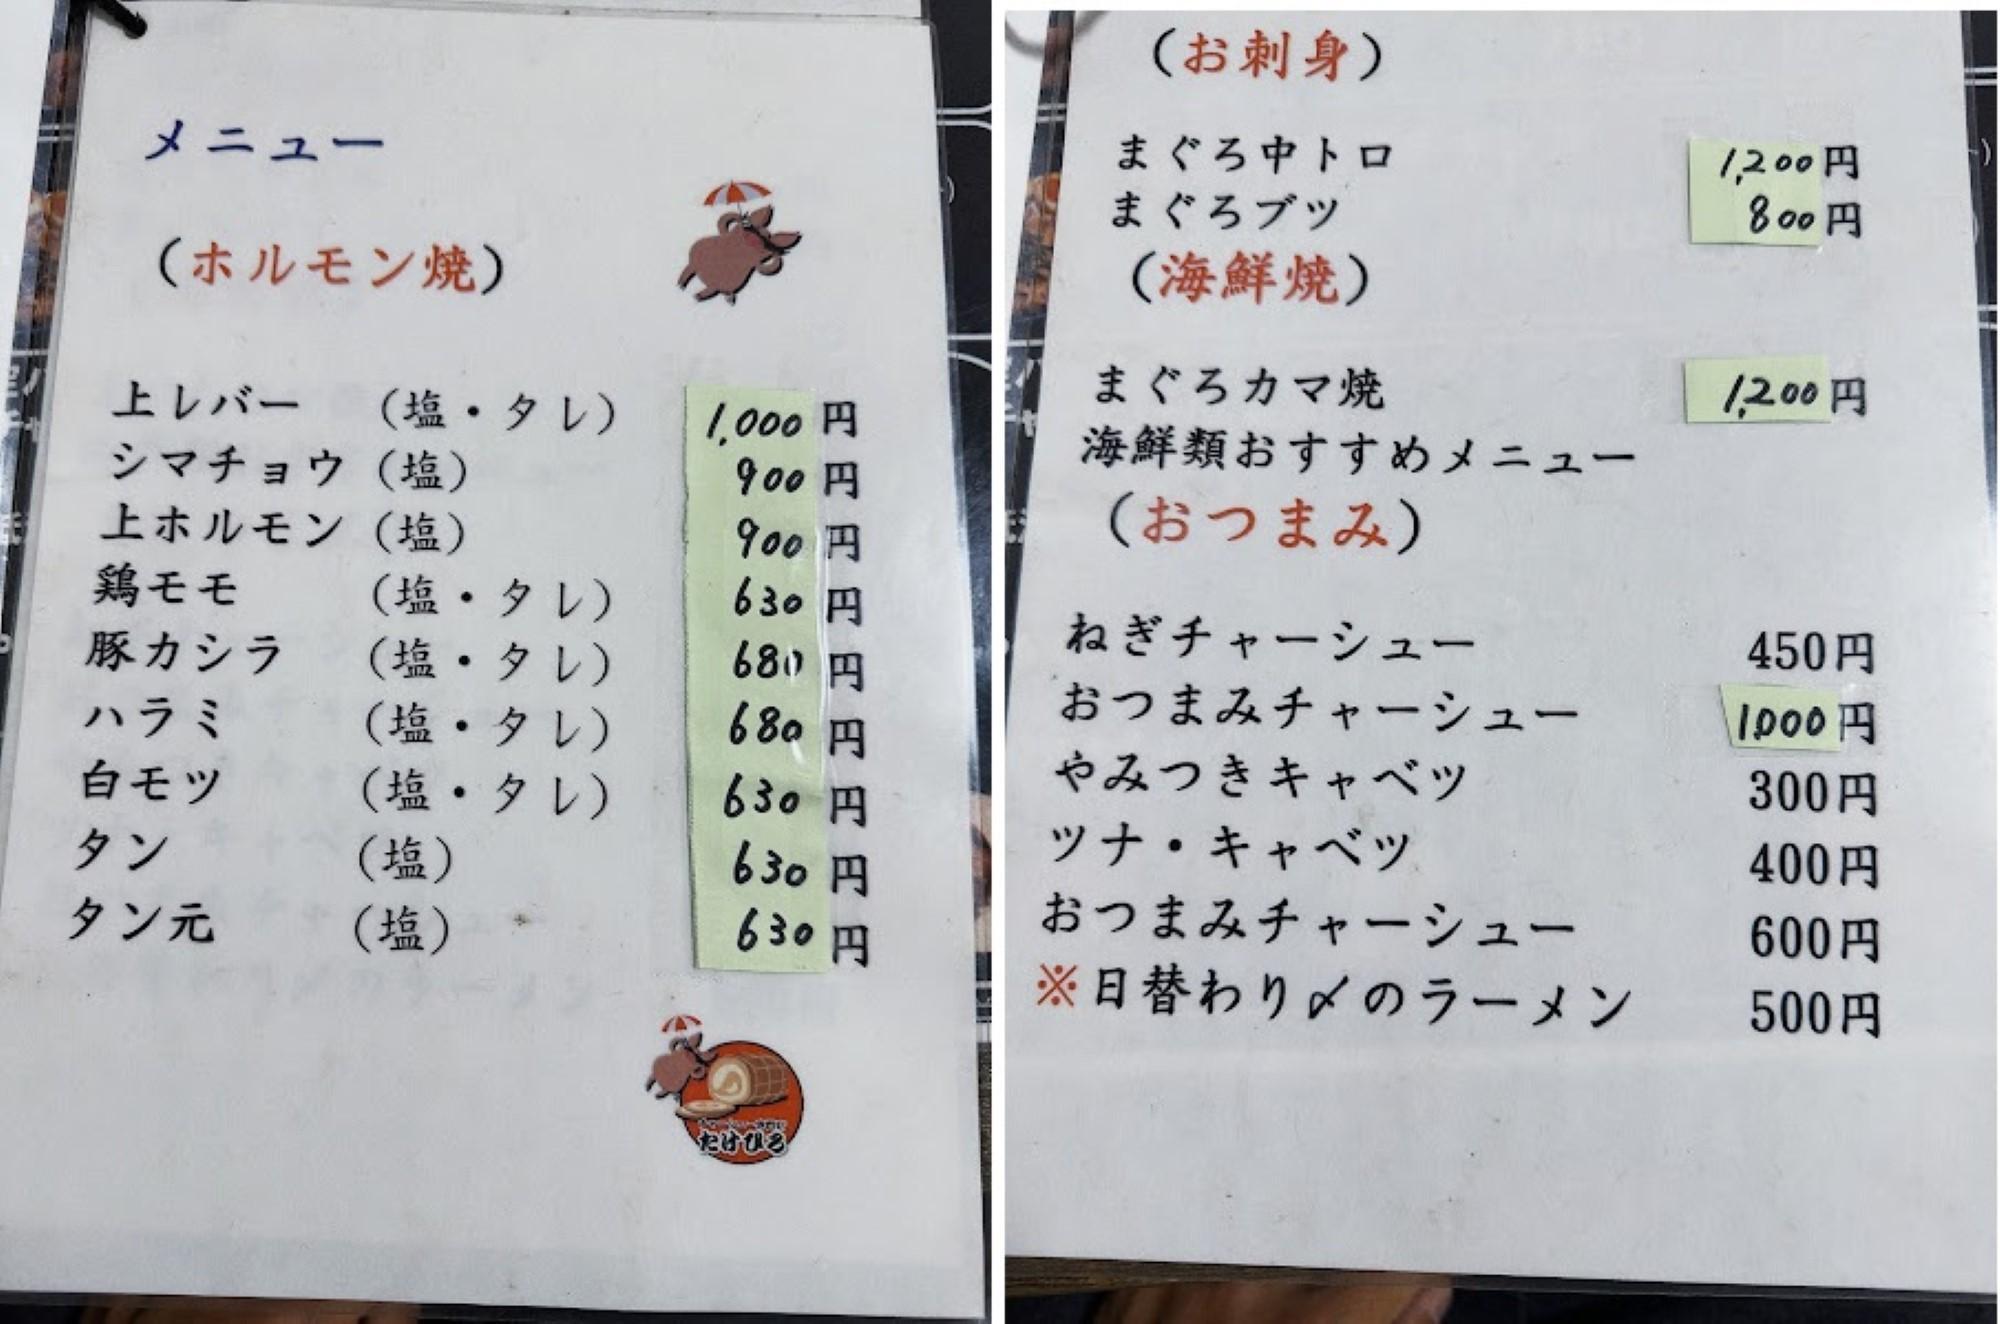 メニュー
（ホルモン焼）
上レバー （塩・タレ） 1,000円
シマチョウ （塩） 900円
上ホルモン （塩） 900円
鶏モモ （塩・タレ） 630円
豚カシラ （塩・タレ） 680円
ハラミ （塩・タレ） 680円
白モツ （塩・タレ） 630円
タン （塩） 630円
タン元 （塩） 630円
たけひろ
（お刺身）
まぐろ中トロ 1,200円
まぐろブツ 800円
（海鮮焼）
まぐろカマ焼 1,200円
海鮮類おすすめメニュー
（おつまみ）
ねぎチャーシュー 450円
おつまみチャーシュー 1,000円
やみつきキャベツ 300円
ツナ・キャベツ 400円
おつまみチャーシュー 600円
※日替わり〆のラーメン 500円